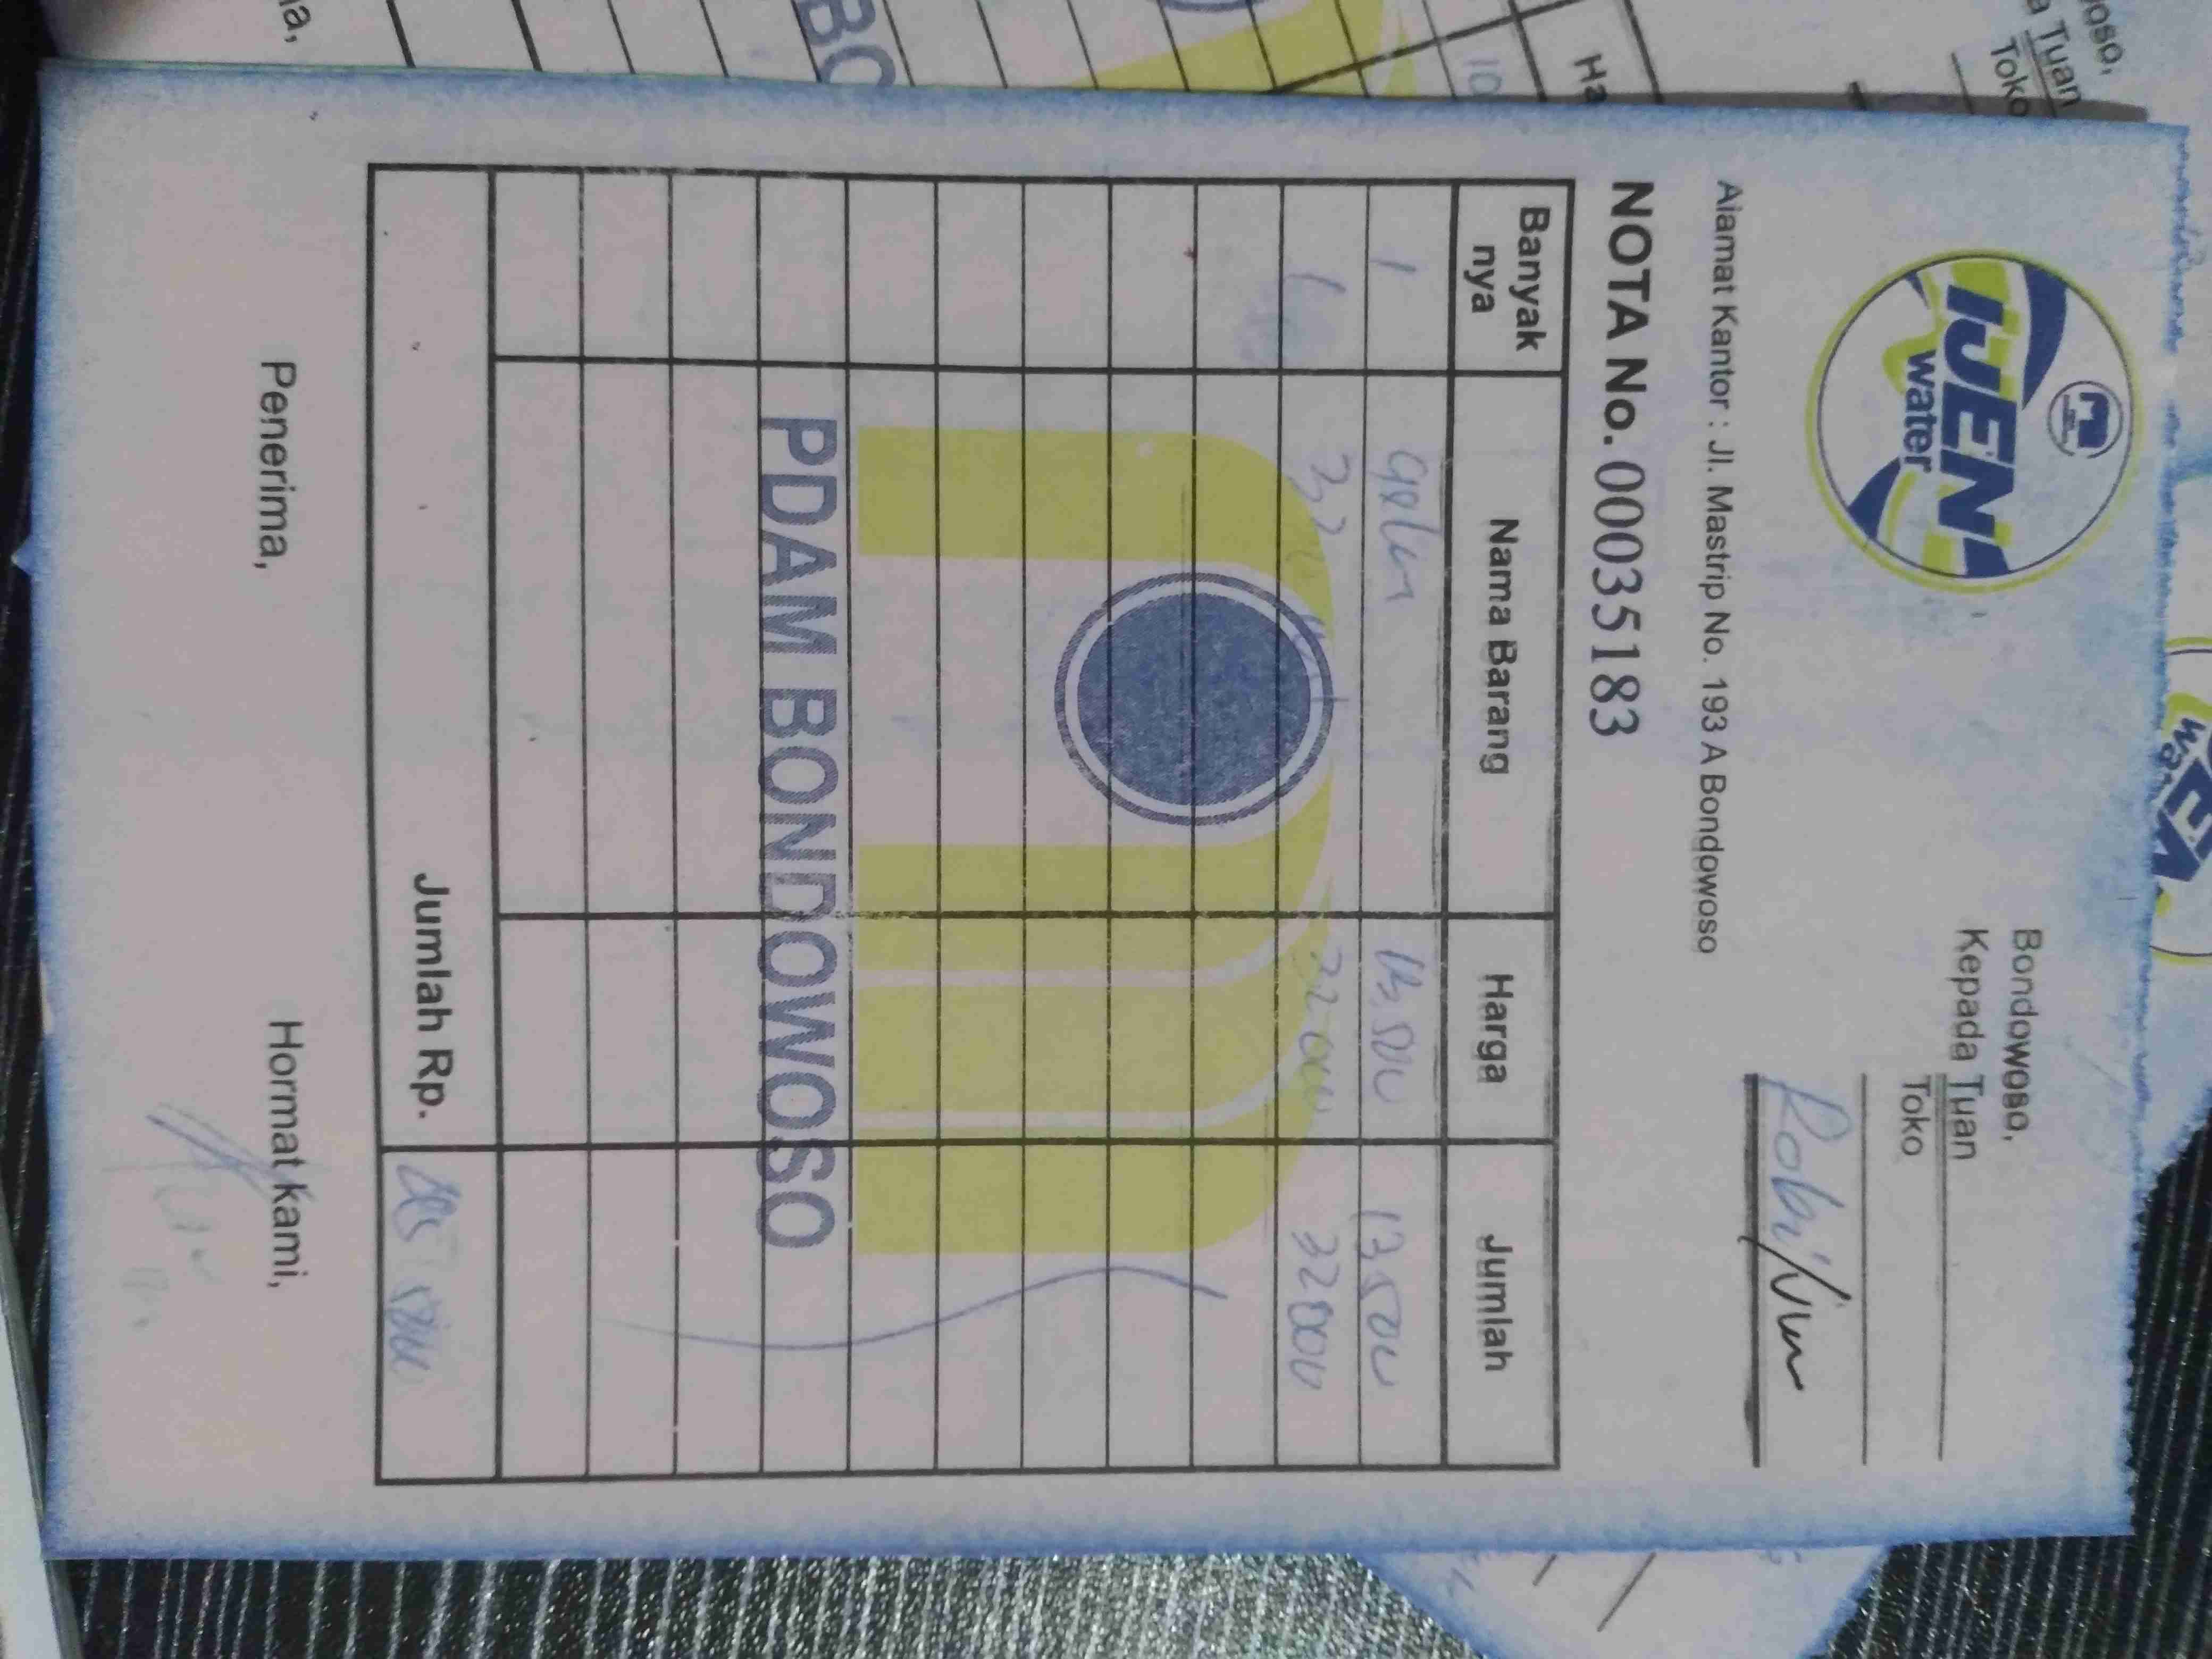 IJEN
water
Bondowoso,
Kepada Tuan
Toko
Robi
Alamat Kantor : Jl. Mastrip No. 193 A Bondowoso
NOTA No. 00035183
Banyak nya Nama Barang Harga Jumlah
1 gelas 13.500 13500
1 32000 32000
PDAM BONDOWOSO
Jumlah Rp. 45 500
Penerima, Hormat kami,